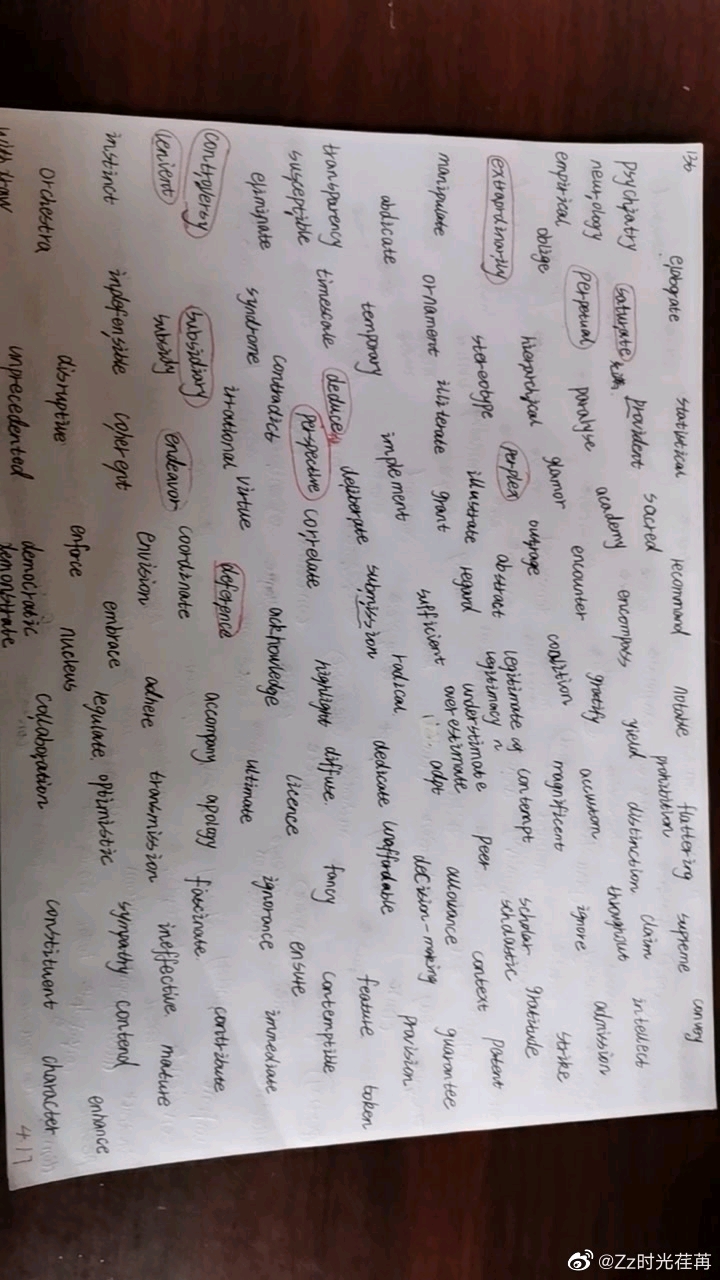 136 elaborate statistical recommend notable flattering supreme convey
prohibition
psychiatry saturate provident sacred encompass yield distinction claim intellect
neurology perpetual paralyse academy encounter gratify accustom throughout admission
empirical oblige hierarchical glamor outrage coalition magnificent ignore strike
extraordinarily stereotype perplex abstract legitimate contempt scholar gratitude
legitimacy n scholastic
manipulate ornament illiterate illustrate regard understimate peer context patent
abdicate temporary implement grant sufficient overestimate allowance guarantee
adpt decision-making provision
transparency timescale deduce deliberate submission radical dedicate unaffordable feature token
susceptible contradict perspective correlate highlight diffuse fancy contemptible
eliminate syndrome irrational virtue acknowledge licence ensure
controversy subsidiary deference ultimate ignorance immediate
lenient subsidy endeavor coordinate accompany apology fasinate contribute
instinct indefensible coherent envision adhere transmission ineffective mature
orchestra disruptive enforce embrace regulate optimistic sympathy contend enhance
nucleus
withdraw unprecedented democratic collaboration constituent character
demonstrate
4.17
@Zz时光荏苒